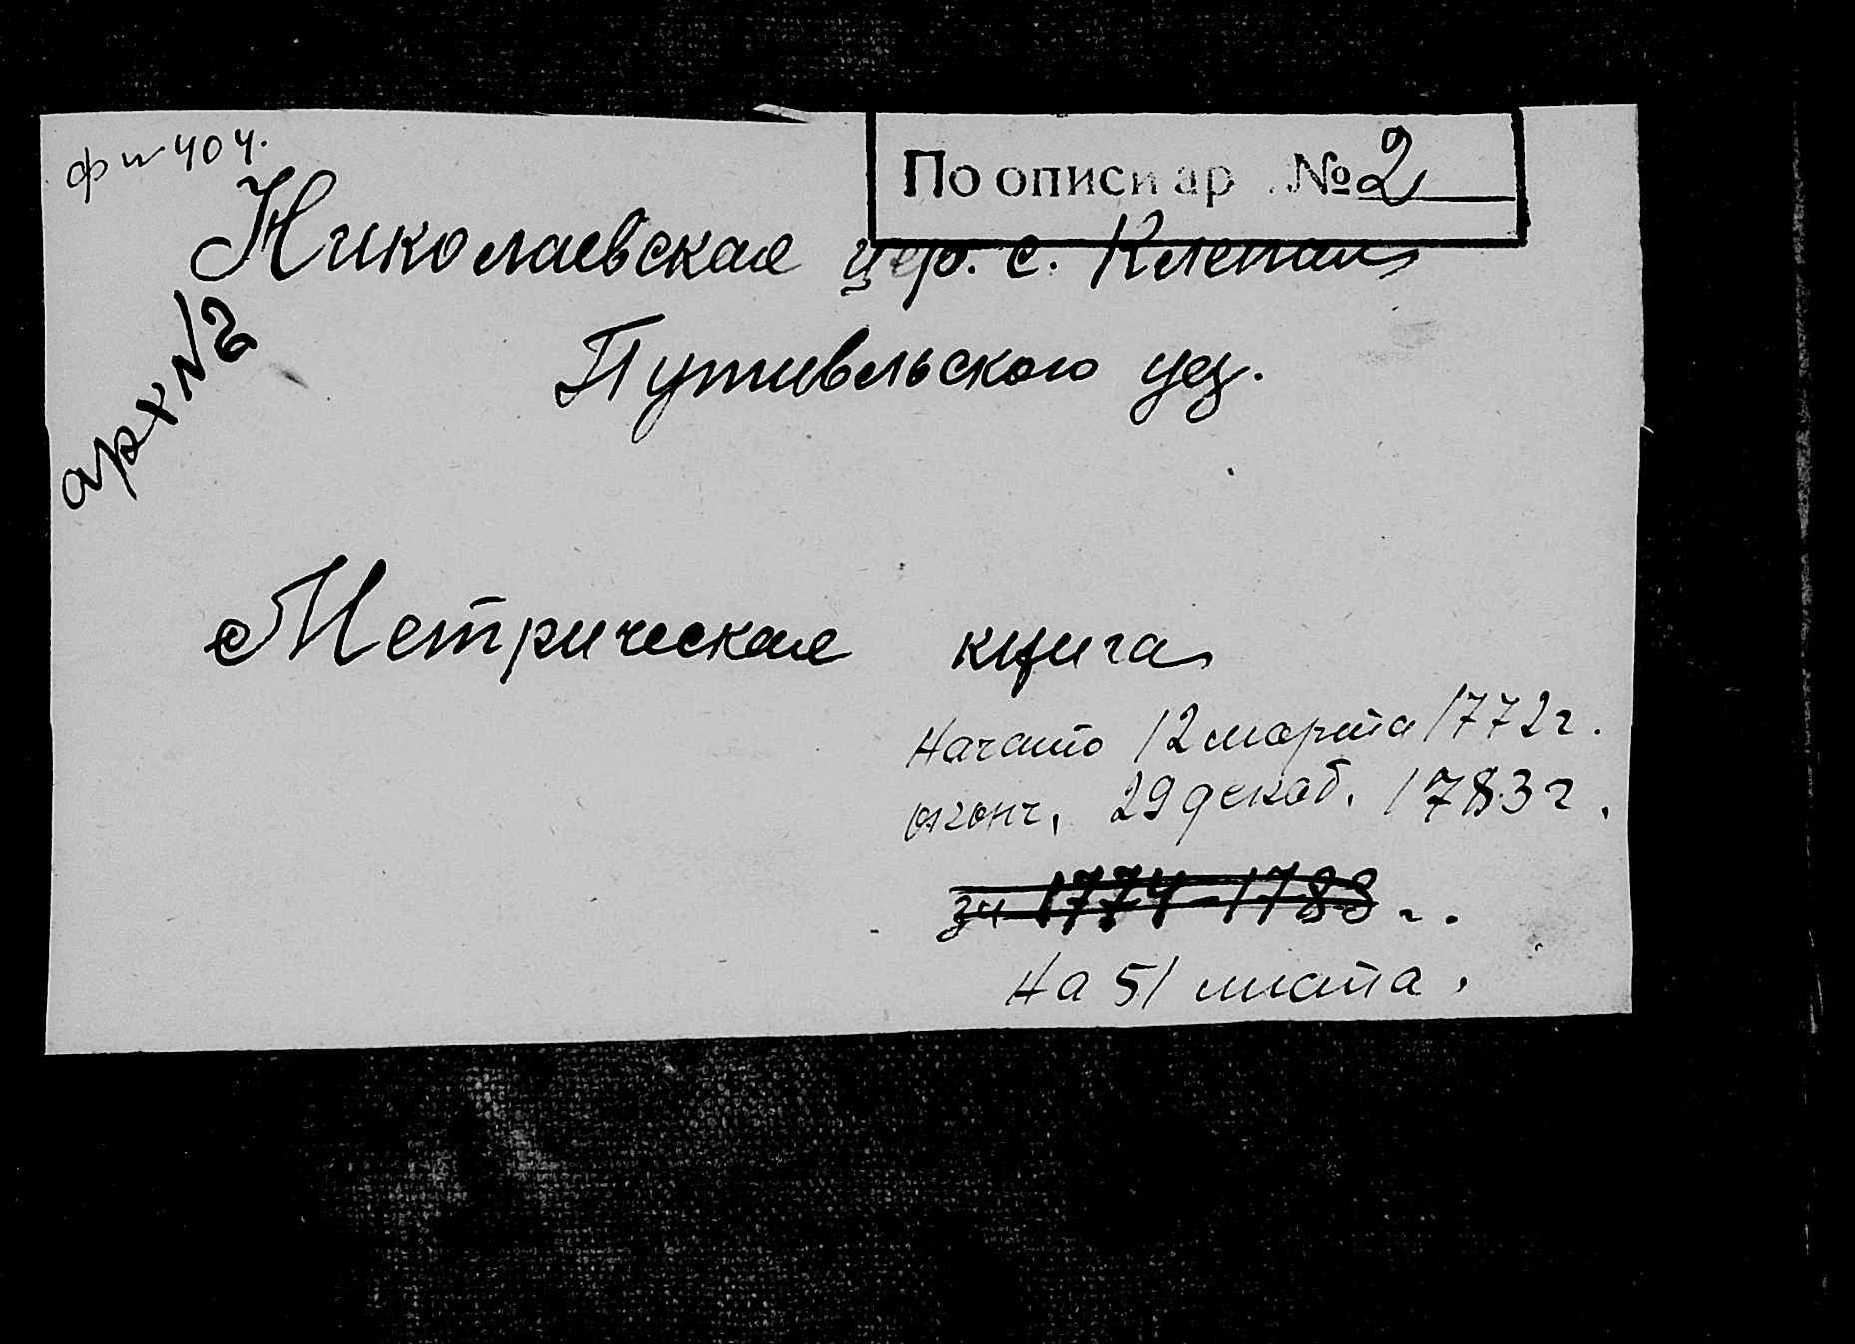 ф № 404.
По описи ар . № 2
Николаевская цер. с. Клепал
Путивльского уез.
арх № 2
Метрическая книга
Начато 12 марта 1772 г.
оконч. 29 декаб. 1783 г.
за 1774-1788 г.
На 51 листа.